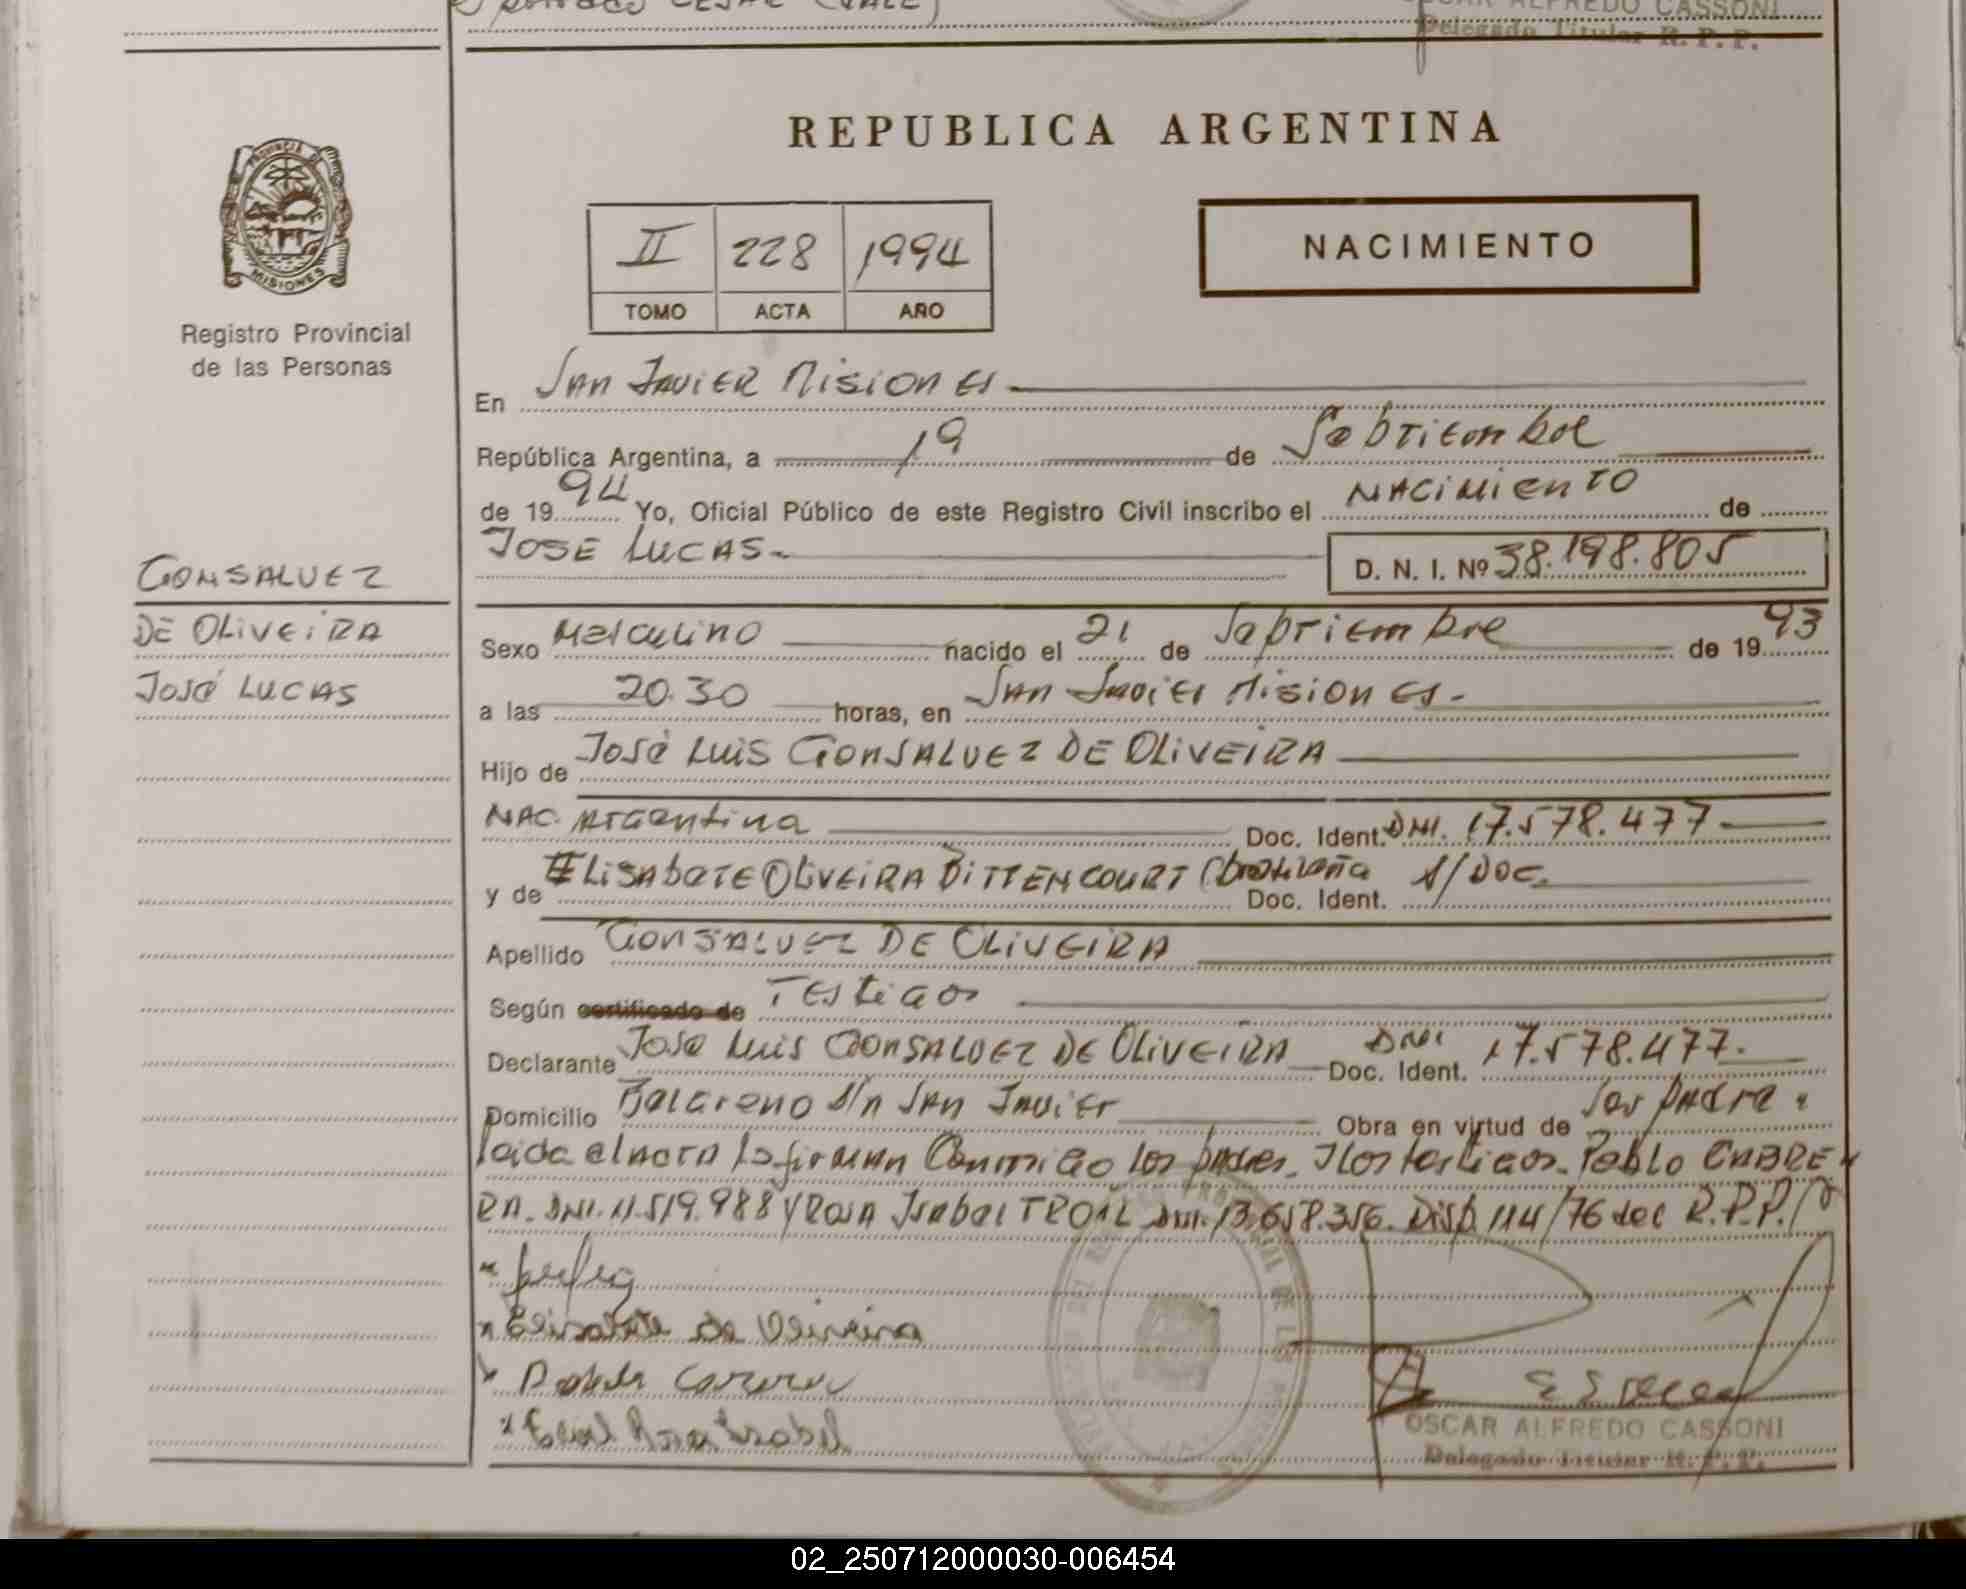 OSCAR ALFREDO CASSONI
Delegado Titular R. P. P.
REPUBLICA ARGENTINA
PROVINCIA DE
MISIONES
Registro Provincial
de las Personas
II 228 1994
TOMO ACTA AÑO
NACIMIENTO
En San Javier Misiones
República Argentina, a 19 de Septiembre
de 1994 Yo, Oficial Público de este Registro Civil inscribo el NACIMIENTO de
JOSE LUCAS.- D. N. I. Nº 38.198.805
GONSALVEZ
DE OLIVEIRA
José LUCAS
Sexo Masculino nacido el 21 de Septiembre de 1993
a las 20.30 horas, en San Javier Misiones.-
Hijo de José Luis GONSALVEZ DE OLIVEIRA
NAC. Argentina Doc. Ident. DNI. 17.578.477
y de ELISAbete OLIVEIRA BITTENCOURT (brasileña Doc. Ident. S/Doc.
Apellido GONSALVEZ DE OLIVEIRA
Según certificado de Testigos
Declarante Jose Luis GONSALVEZ DE OLIVEIRA Doc. Ident. DNI 17.578.477.
Domicilio s/n San Javier Obra en virtud de ser padre.
leida el Acta la firman Conmigo los padres. y los testigos. Pablo CABRE
RA. DNI. 11.519.988 y Rosa Isabel DNI. 13.658.356. Disp. 114/76 del R.P.P.
Elisabete de Oliveira
Rosa Isabel
OSCAR ALFREDO CASSONI
Delegado Titular R. P. P.
02_250712000030-006454